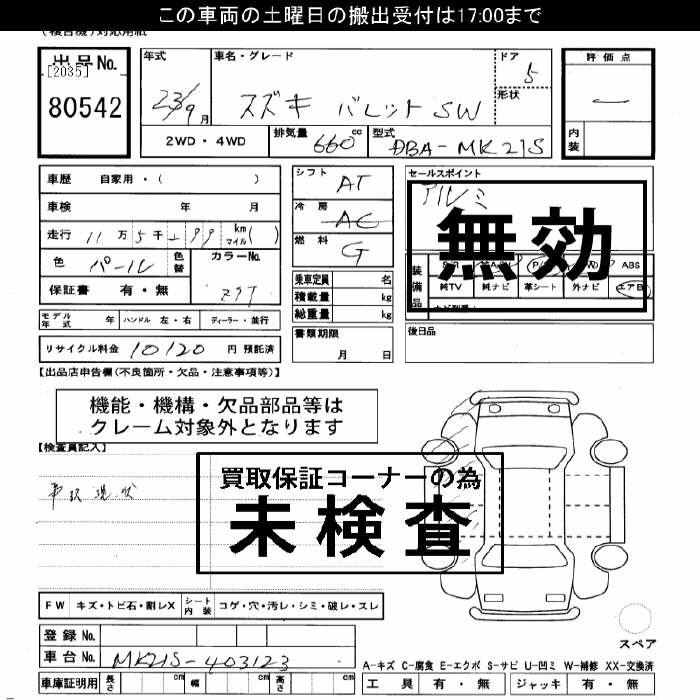 この車両の土曜日の搬出受付は17:00まで
(複合機)対応用紙
出品No. [2035] 80542
年式 23/9月
車名・グレード スズキ パレットSW
ドア 5
形状
評価点 ー
内装
2WD・4WD
排気量 660cc
型式 DBA-MK21S
車歴 自家用・( )
車検 年 月
走行 11万5千 99 km マイル( )
色 パール 色替
カラーNo. Z9T
保証書 有・無
シフト AT
冷房 AC
燃料 G
乗車定員 名
積載量 kg
総重量 kg
書類期限 月 日
セールスポイント アルミ
無効
装備品 ABS
純TV 純ナビ 革シート 外ナビ エアB
後日品
モデル年式 年 ハンドル 左・右 ディーラー・並行
リサイクル料金 10120 円 預託済
【出品店申告欄(不良箇所・欠品・注意事項等)】
機能・機構・欠品部品等は
クレーム対象外となります
【検査員記入】
車訳現状
買取保証コーナーの為
未検査
FW キズ・トビ石・割レX シート内装 コゲ・穴・汚レ・シミ・破レ・スレ
登録No.
車台No. MK21S-403123
車庫証明用 長さ cm 幅 cm 高さ cm
スペア
A-キズ C-腐食 E-エクボ S-サビ U-凹ミ W-補修 XX-交換済
工具 有・無 ジャッキ 有・無